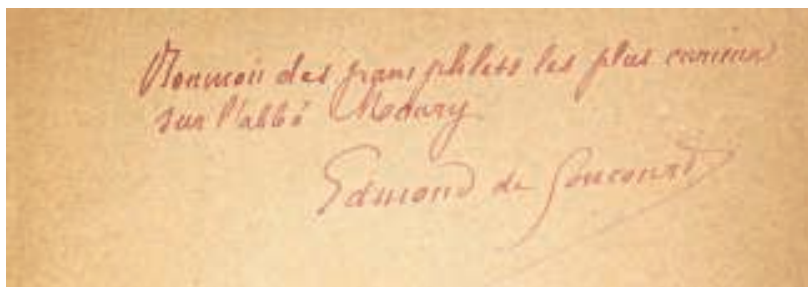 des pamphlets les plus curieux
sur l'abbé Maury
Edmond de Goncourt